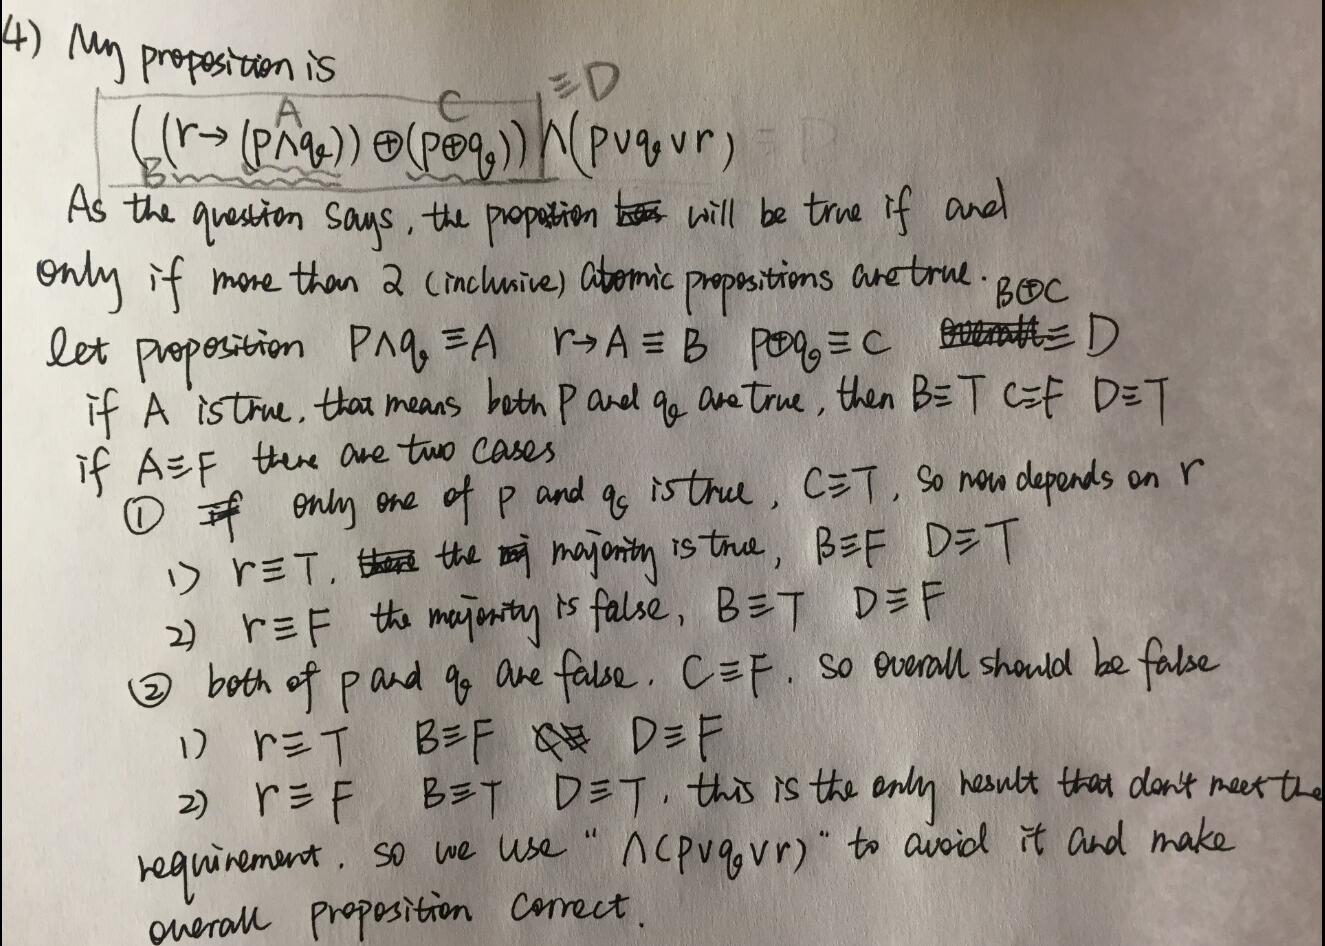 4) My proposition is
≡D
A C
((r→(p∧q))⊕(p⊕q))∧(p∨q∨r)
B
As the question says, the propotion will be true if and
only if more than 2 (inclusive) atomic propositions are true.
B⊕C
let proposition P∧q≡A r→A≡B p⊕q≡C ≡D
if A is true, that means both P and q are true, then B≡T C≡F D≡T
if A≡F there are two cases
① only one of p and q is true, C≡T, so now depends on r
1) r≡T, the majority is true, B≡F D≡T
2) r≡F the majority is false, B≡T D≡F
② both of p and q are false. C≡F. so overall should be false
1) r≡T B≡F D≡F
2) r≡F B≡T D≡T, this is the only result that don't meet the
requirement. so we use "∧(p∨q∨r)" to avoid it and make
overall proposition correct.